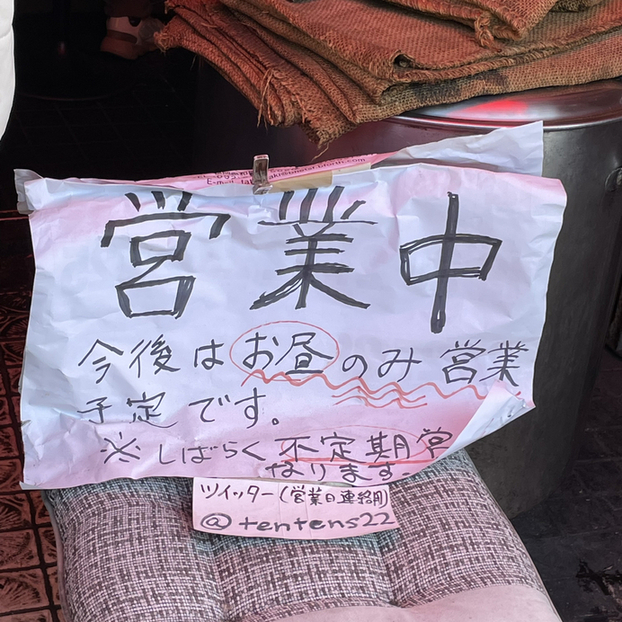 営業中
今後はお昼のみ営業
予定です。
※しばらく不定期営
なります
ツイッター(営業日連絡用)
@tentens22